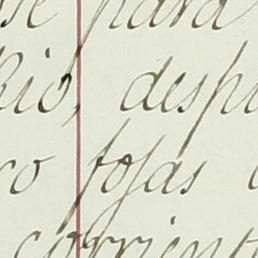 para
Rio, desp
ro fojas
corrient